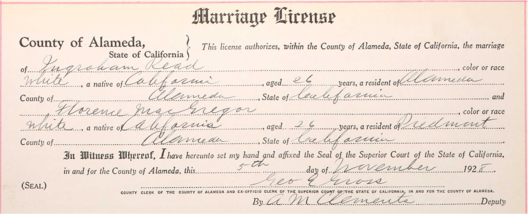 Marriage License
County of Alameda,
State of California
This license authorizes, within the County of Alameda, State of California, the marriage
of Ingraham Read, color or race
White, a native of California, aged 26 years, a resident of Alameda
County of Alameda, State of California and
Florence MacGregor, color or race
White, a native of California, aged 26 years, a resident of Piedmont
County of Alameda, State of California
In Witness Whereof, I have hereunto set my hand and affixed the Seal of the Superior Court of the State of California,
in and for the County of Alameda, this 5th day of November 1928
(SEAL) Geo E Gross
COUNTY CLERK OF THE COUNTY OF ALAMEDA AND EX-OFFICIO CLERK OF THE SUPERIOR COURT OF THE STATE OF CALIFORNIA, IN AND FOR THE COUNTY OF ALAMEDA.
By A M Clements Deputy